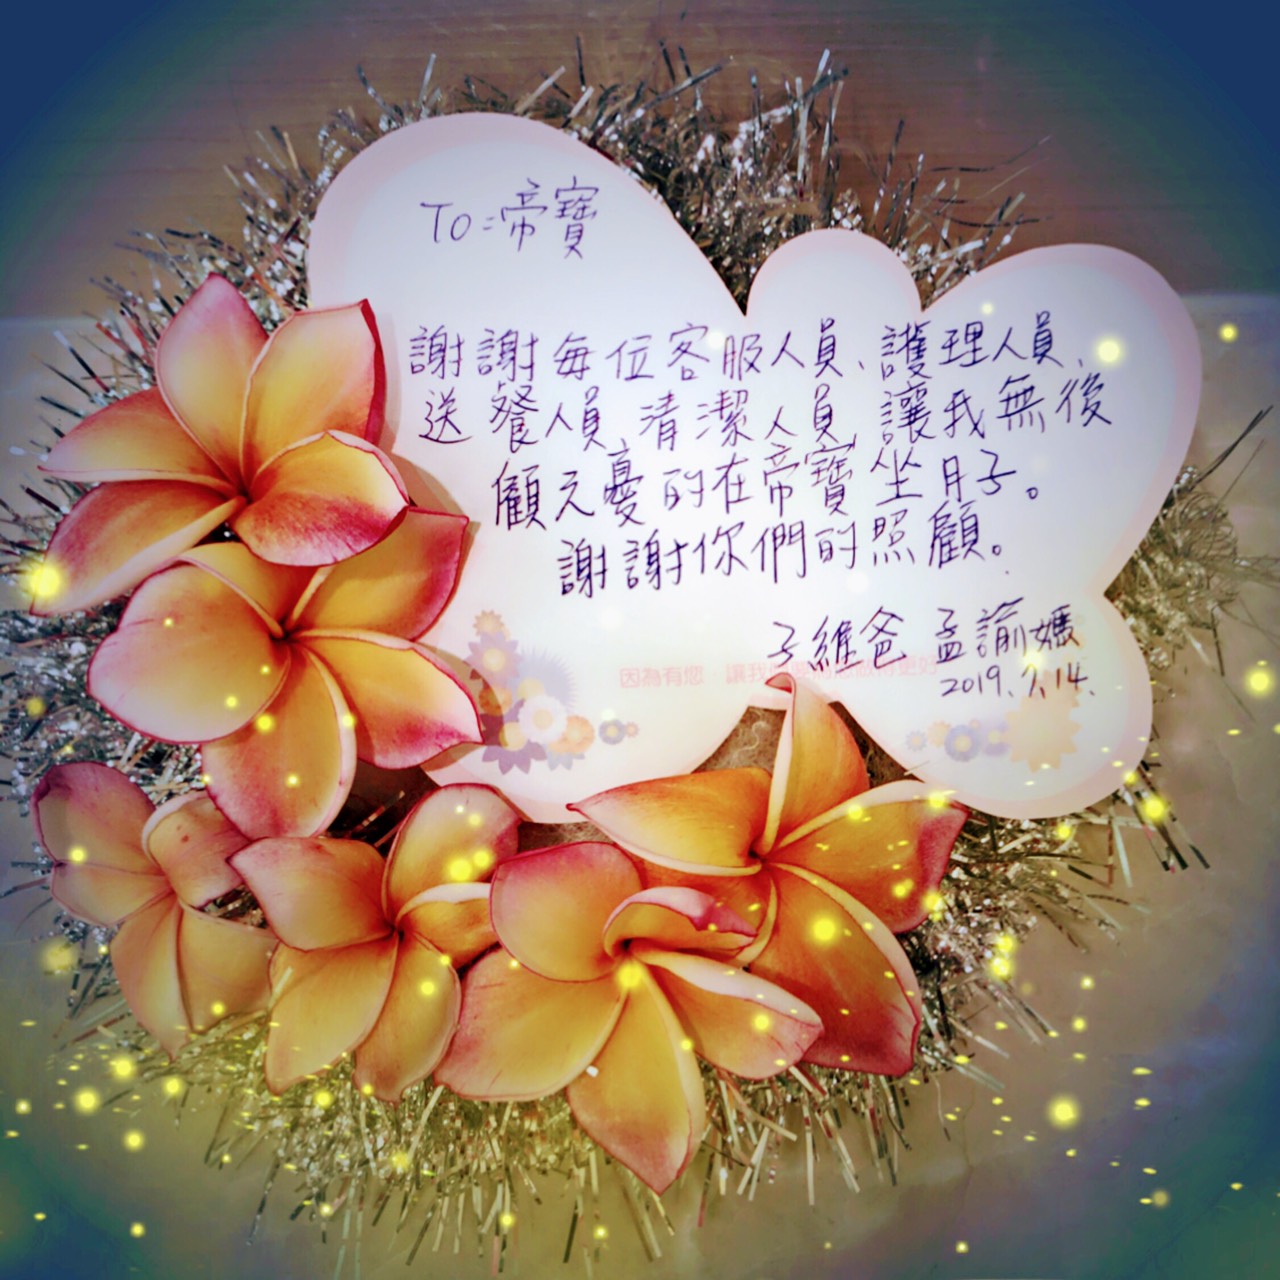 To=帝寶
謝謝每位客服人員、護理人員、
送餐人員、清潔人員,讓我無後
顧之憂的在帝寶坐月子。
謝謝你們的照顧。
子維爸 孟諭媽
2019.7.14.
因為有您 讓我 更好